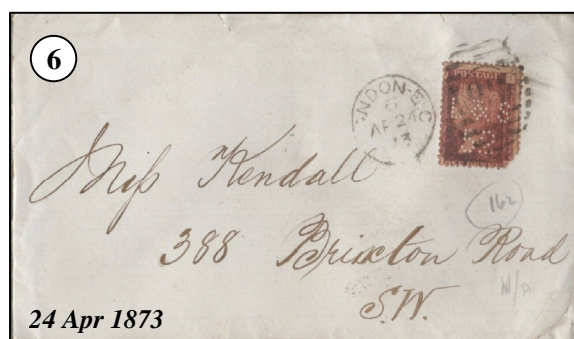 6
POSTAGE
LONDON·E.C
6
AP 24
73
Miss Kendall
388 Brixton Road
S.W.
162
N/A
24 Apr 1873